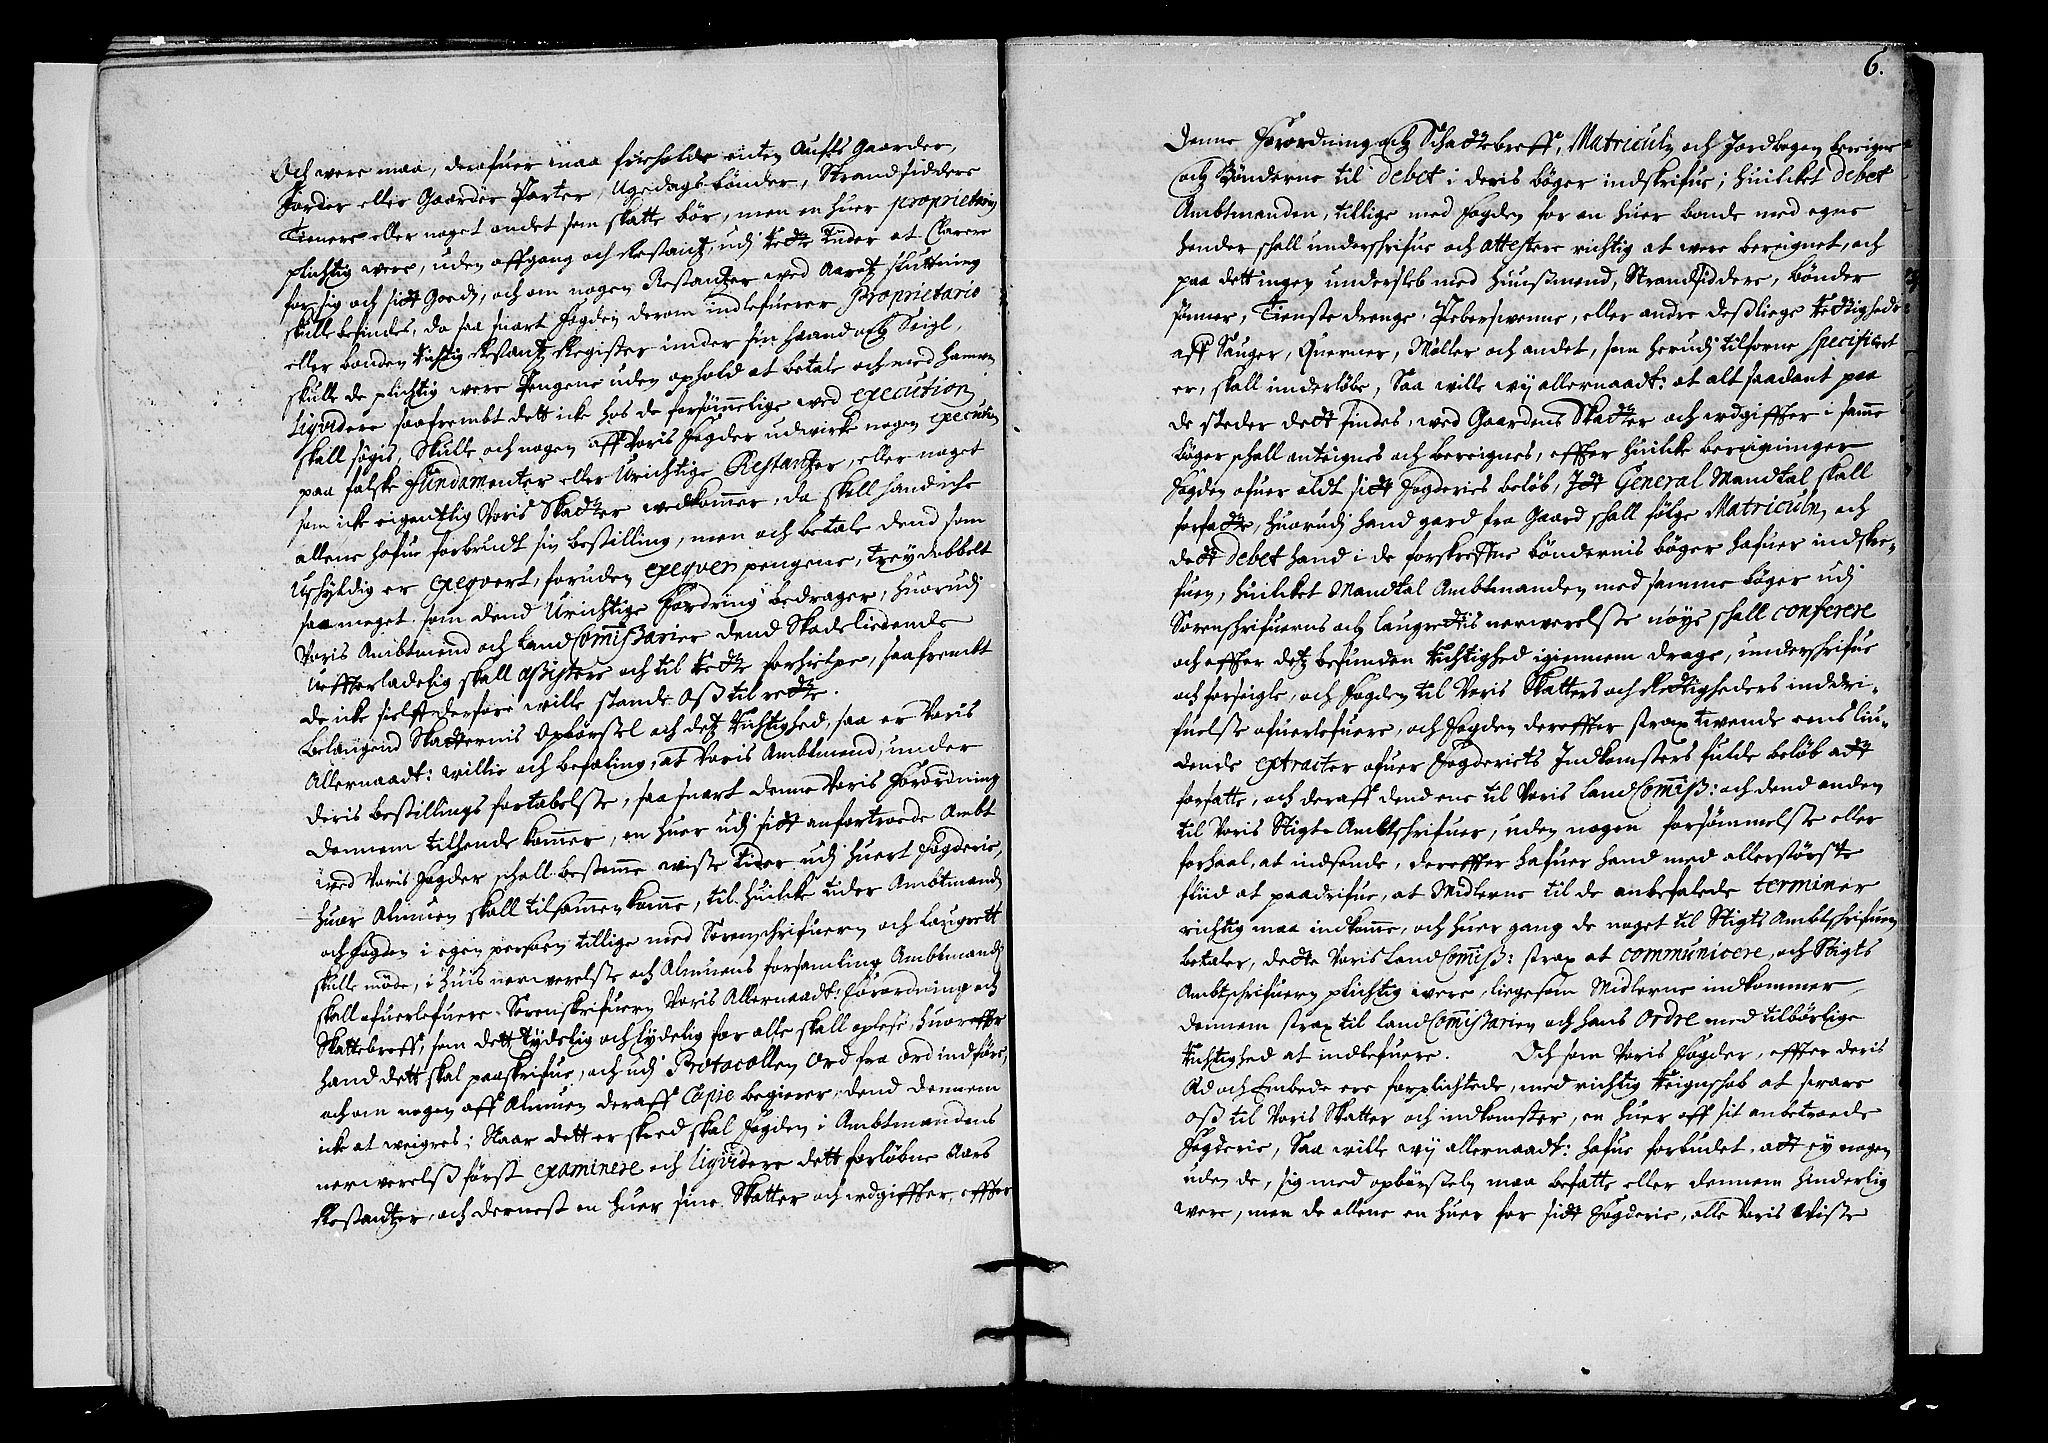 Och were maa, derofuer maa forholde enten Auffls Gaarder,
Jorder eller Gaarder Parter, Ugedags bønder, Strandsiddere
Tienere eller noget andet som skatte bør, men en huer proprietarius
plichtig were, uden affgang och Restantz, udj rette tider at Clarere
for sig och sidt Goeds, och om nogen Restantzer wed Aaretz sluttning
skulle befindes, da saa snart Fogden derom indlefuerer Proprietario
eller bonden rictig Restantz Register under sin haand och Seigl,
skulle de plichtig were Pengene uden ophold at betale och med hannem
Liqvidere saafrembt dett icke hos de forsømmelige wed execution
skall søgis, Skulle och nogen aff Voris Fogder udwirke nogen execution
paa falske Fundamenter eller Urichtige Restantzer, eller noget
som icke eigentlig Voris Skatter wedkommer, da skall hand icke
allene hafue forbrudt sin bestilling, men och betale dend som
Uskyldig er exeqvert, foruden exeqver pengene, treydobbelt
saa meget som dend Urichtige Fordring bedrager, huorudj
Voris Ambtmend och Land Commissarier dend Skadelidende
Ueffterladelig skall assistere och til rette forhielpe, saafrembt
de icke sielf derfore wille stande Oss til rette.
Belangend Skatternis Opbørsel och detz Richtighed, saa er Voris
Allernaadt: willie och befaling, at Voris Ambtmend, under
deris bestillings fortabelse, saa snart denne Voris Forordning
dennem tilhende kommer, en huer udj sidt anfortroede Ambt
med Voris Fogder schall bestemme wisse tider udj huert Fogderie,
huor Almuen skall tilsammen komme, til huilcke tider Ambtmand
och Fogden i egen persoen tillige med Sorenschrifueren och Laugrett
skulle møde, i huis nerwerelse och Almuens forsamling Ambtmand
skall ofuerlefuere Sorenskrifueren Voris Allernaadt: Forordning och
Skattebreff, som dett tydelig och lydelig for alle skall oplese, huoreffter
hand dett skal paaskrifue, och udj Protocollen Ord fra Ord indføre,
och om nogen aff Almuen deraff Copie begierer, dend dennem
icke at weigres; Naar dett er skeed skal Fogden i Ambtmandens
nerwerelse først examinere och liqvidere dett forløbne Aars
Restantzer, och dernest en huer sine Skatter och udgiffter, effter
6.
Denne Forordning och Schattebreff, Matriculn och Jordbogen beregne
och Bønderne til debet i deris bøger indskrifue; huilcket debet
Ambtmanden, tillige med Fogden for en huer bonde med egne
hender schall underschrifue och attestere richtig at were bereignet, och
paa dett ingen undersleb med Huusmend, Strandsiddere, bønder
sønner, Tieneste drenge, Pebersvenne, eller andre desliege Rettigheder
aff Sauger, Querner, Møller och andet, som herudj tilforne specificert
er, skall underløbe, Saa wille wij allernaadt: at alt saadant paa
de steder dett findes, wed Gaardens Skatter och udgiffter i samme
bøger schall anteignes och bereignes, effter huilcke bereigninger
Fogden ofuer aldt sidt Fogderies beløb, Jdt General Mandtal skall
forfatte, huorudj hand gard fra Gaard schall følge Matriculn och
dett debet hand i de forskreffne bøndernis bøger hafuer indskre-
fuen, huilcket Mandtal Ambtmanden med samme bøger udj
Sorenschrifuerens och laugrettis nerwerelse nøye schall conferere
och effter detz befunden Richtighed igiennem drage, underschrifue
och forseigle, och Fogden til Voris Skatters och Rettigheders inddri-
fuelse ofuerlefuere, och Fogden dereffter strax twende eens liu-
dende extracter ofuer Fogderiets Indkomsters fulde beløb att
forfatte, och deraff dend ene til Voris Land Commiss: och dend anden
til Voris Stigts Ambtschrifuer, uden nogen forsømmelse eller
forhaal, at indsende, dereffter hafuer hand med allerstørste
fliid at paadrifue, at Midlerne til de anbefalede terminer
richtig maa indkomme, och huer gang de noget til Stigts Ambtschrifueren
betaler, dette Voris Land Commiss: strax at communicere, och Stigts
Ambtschrifueren plichtig were, liegesom Midlerne indkommer
dennem strax til Land Commissarien och hans Ordre med tilbørlige
Richtighed at indlefuere. Och som Voris Fogder, effter deris
Ed och Embede ere forplichtede, med richtig Reignschab at suare
oss til Voris Skatter och indkomster, en huer aff sit anbetroede
Fogderie, Saa wille wij allernaadt: hafue forbudet, att ey nogen
uden de, sig med opbørseln maa befatte eller dennem hinderlig
were, men de allene en huer for sidt Fogderie, alle Voris Wisse